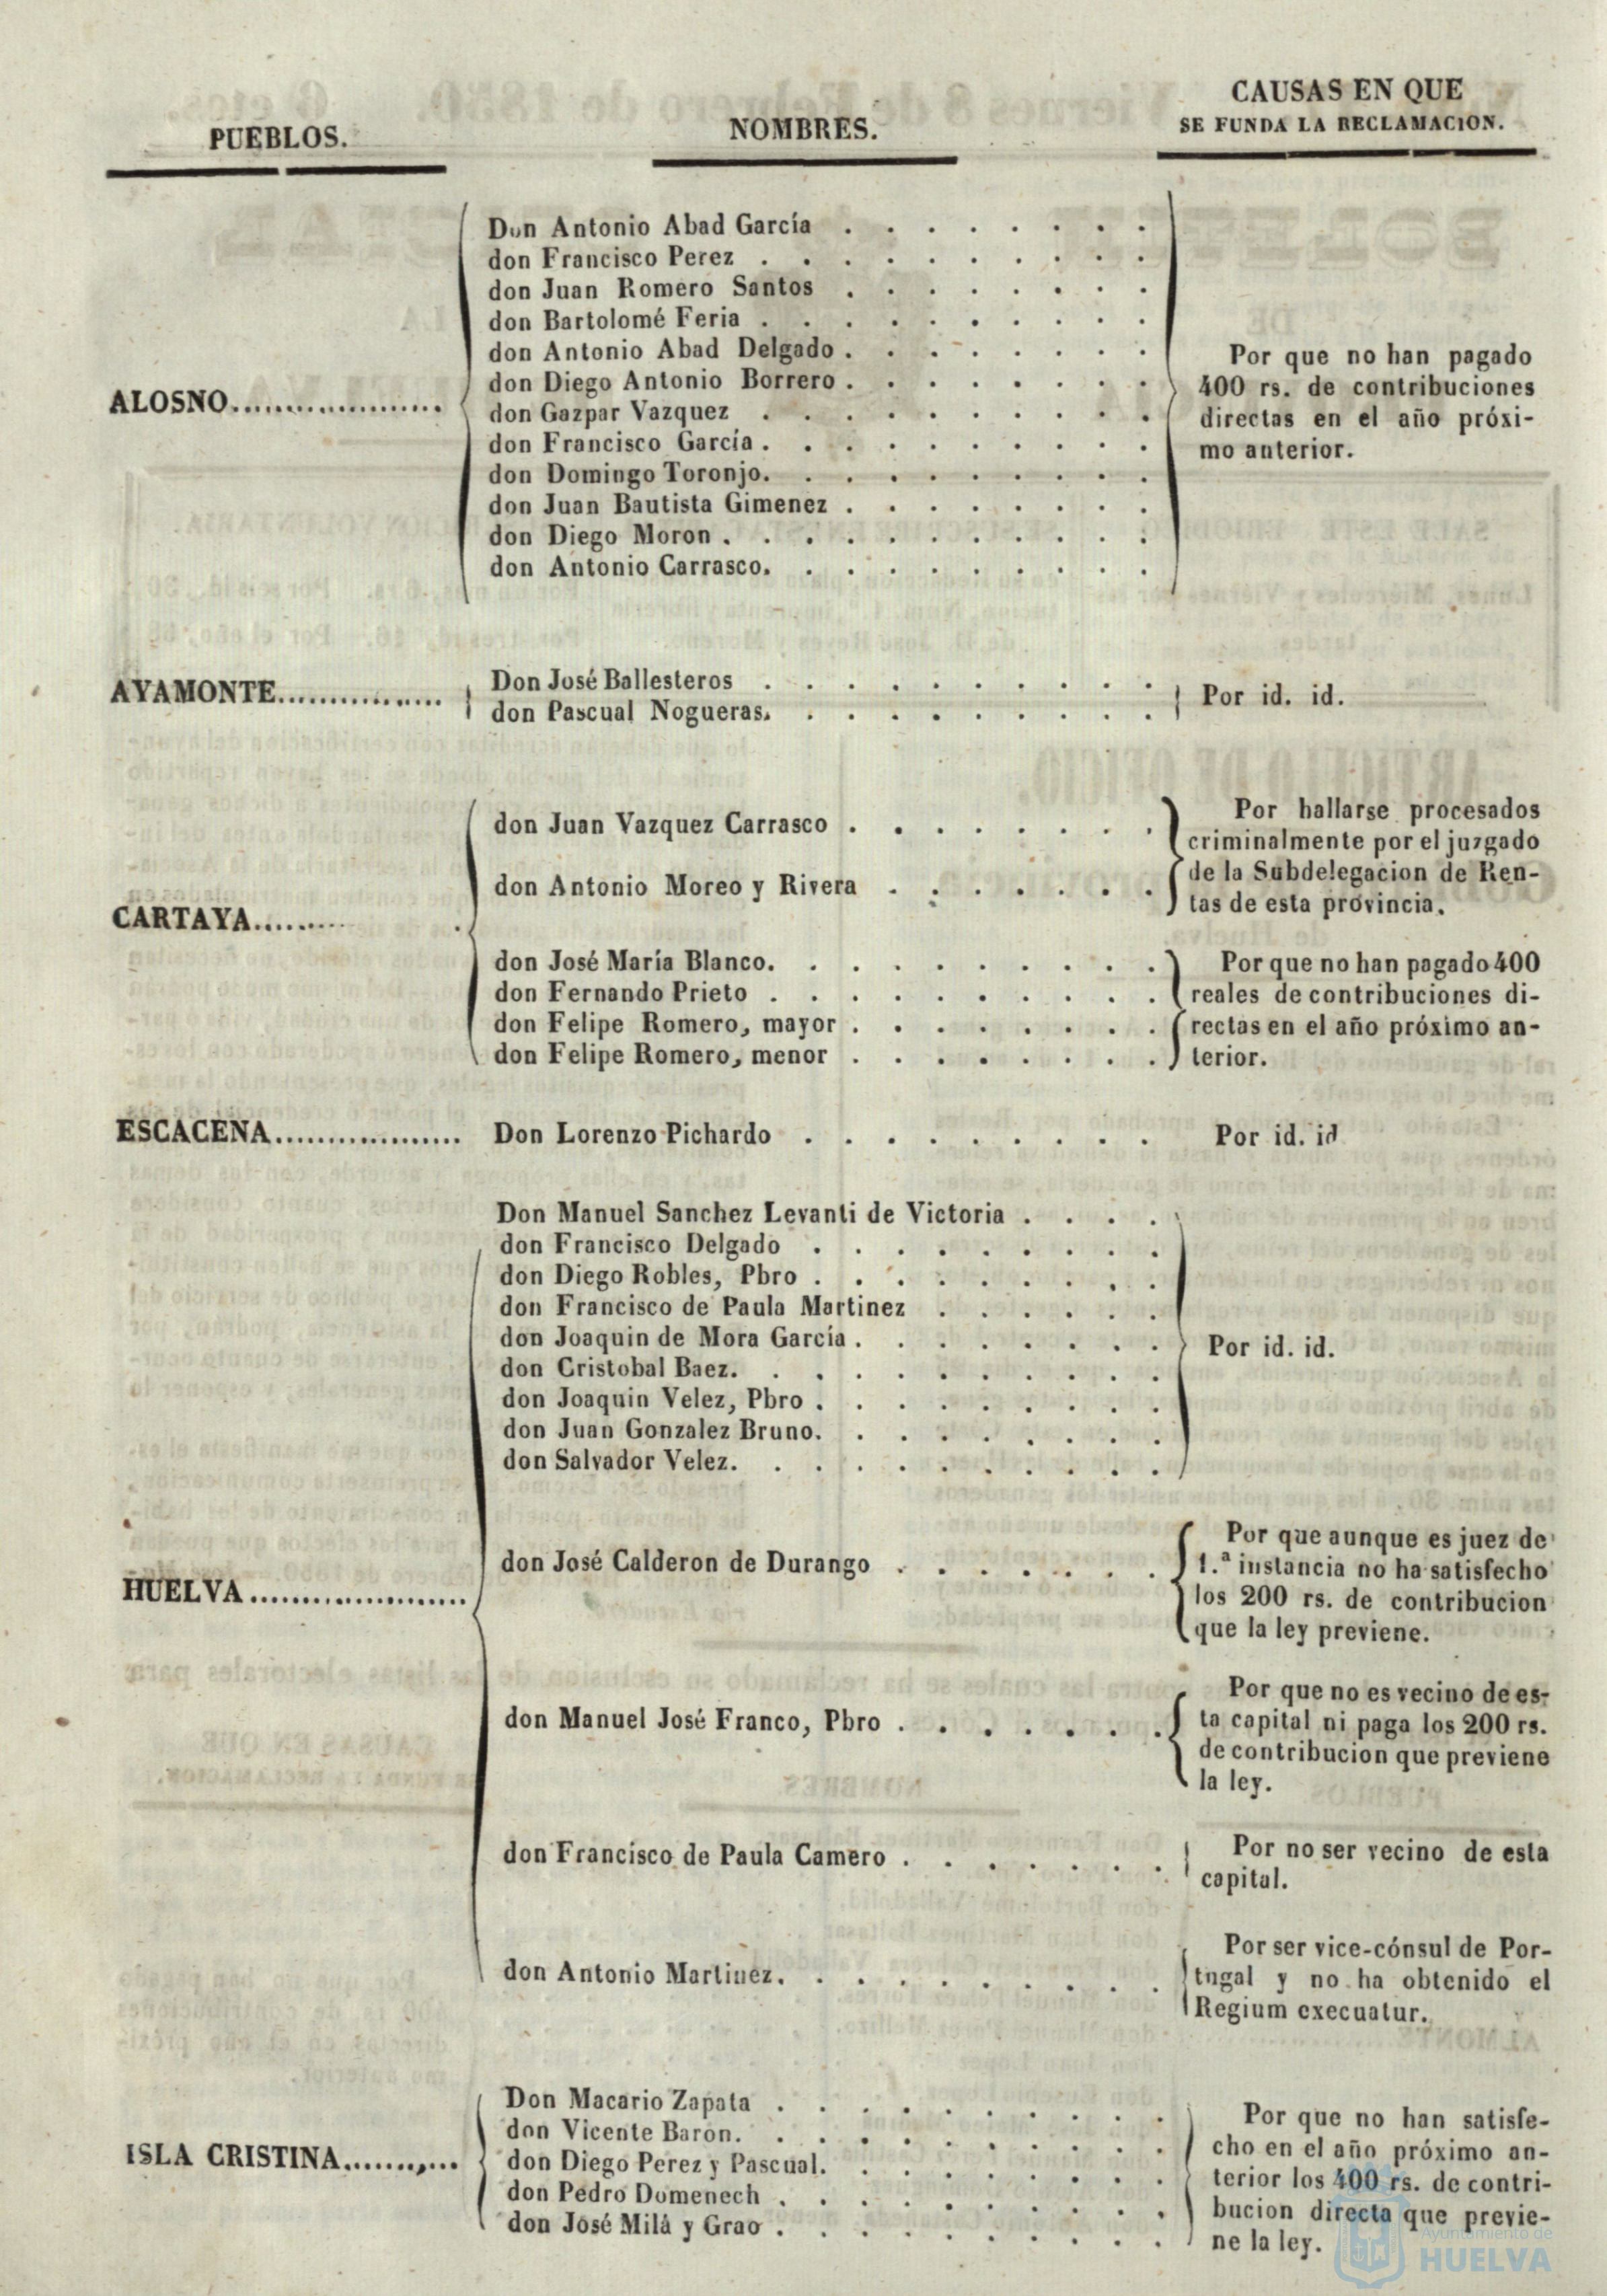 PUEBLOS.
NOMBRES.
CAUSAS EN QUE
SE FUNDA LA RECLAMACION.
ALOSNO....................
Don Antonio Abad García
don Francisco Perez
don Juan Romero Santos
don Bartolomé Feria
don Antonio Abad Delgado
don Diego Antonio Borrero
don Gazpar Vazquez
don Francisco García
don Domingo Toronjo.
don Juan Bautista Gimenez
don Diego Moron
don Antonio Carrasco.
Por que no han pagado
400 rs. de contribuciones
directas en el año próxi-
mo anterior.
AYAMONTE................
Don José Ballesteros
don Pascual Nogueras.
Por id. id.
CARTAYA.........
don Juan Vazquez Carrasco
don Antonio Moreo y Rivera
Por hallarse procesados
criminalmente por el juzgado
de la Subdelegacion de Ren-
tas de esta provincia.
don José María Blanco.
don Fernando Prieto
don Felipe Romero, mayor
don Felipe Romero, menor
Por que no han pagado 400
reales de contribuciones di-
rectas en el año próximo an-
terior.
ESCACENA..................
Don Lorenzo Pichardo
Por id. id
HUELVA.....................
Don Manuel Sanchez Levanti de Victoria
don Francisco Delgado
don Diego Robles, Pbro
don Francisco de Paula Martinez
don Joaquin de Mora García
don Cristobal Baez.
don Joaquin Velez, Pbro
don Juan Gonzalez Bruno.
don Salvador Velez.
Por id. id.
don José Calderon de Durango
Por que aunque es juez de
1.ª instancia no ha satisfecho
los 200 rs. de contribucion
que la ley previene.
don Manuel José Franco, Pbro
Por que no es vecino de es-
ta capital ni paga los 200 rs.
de contribucion que previene
la ley.
don Francisco de Paula Camero
Por no ser vecino de esta
capital.
don Antonio Martinez.
Por ser vice-cónsul de Por-
tugal y no ha obtenido el
Regium execuatur.
ISLA CRISTINA...........
Don Macario Zapata
don Vicente Baron.
don Diego Perez y Pascual.
don Pedro Domenech
don José Milá y Grao
Por que no han satisfe-
cho en el año próximo an-
terior los 400 rs. de contri-
bucion directa que previe-
ne la ley.
Ayuntamiento de
HUELVA